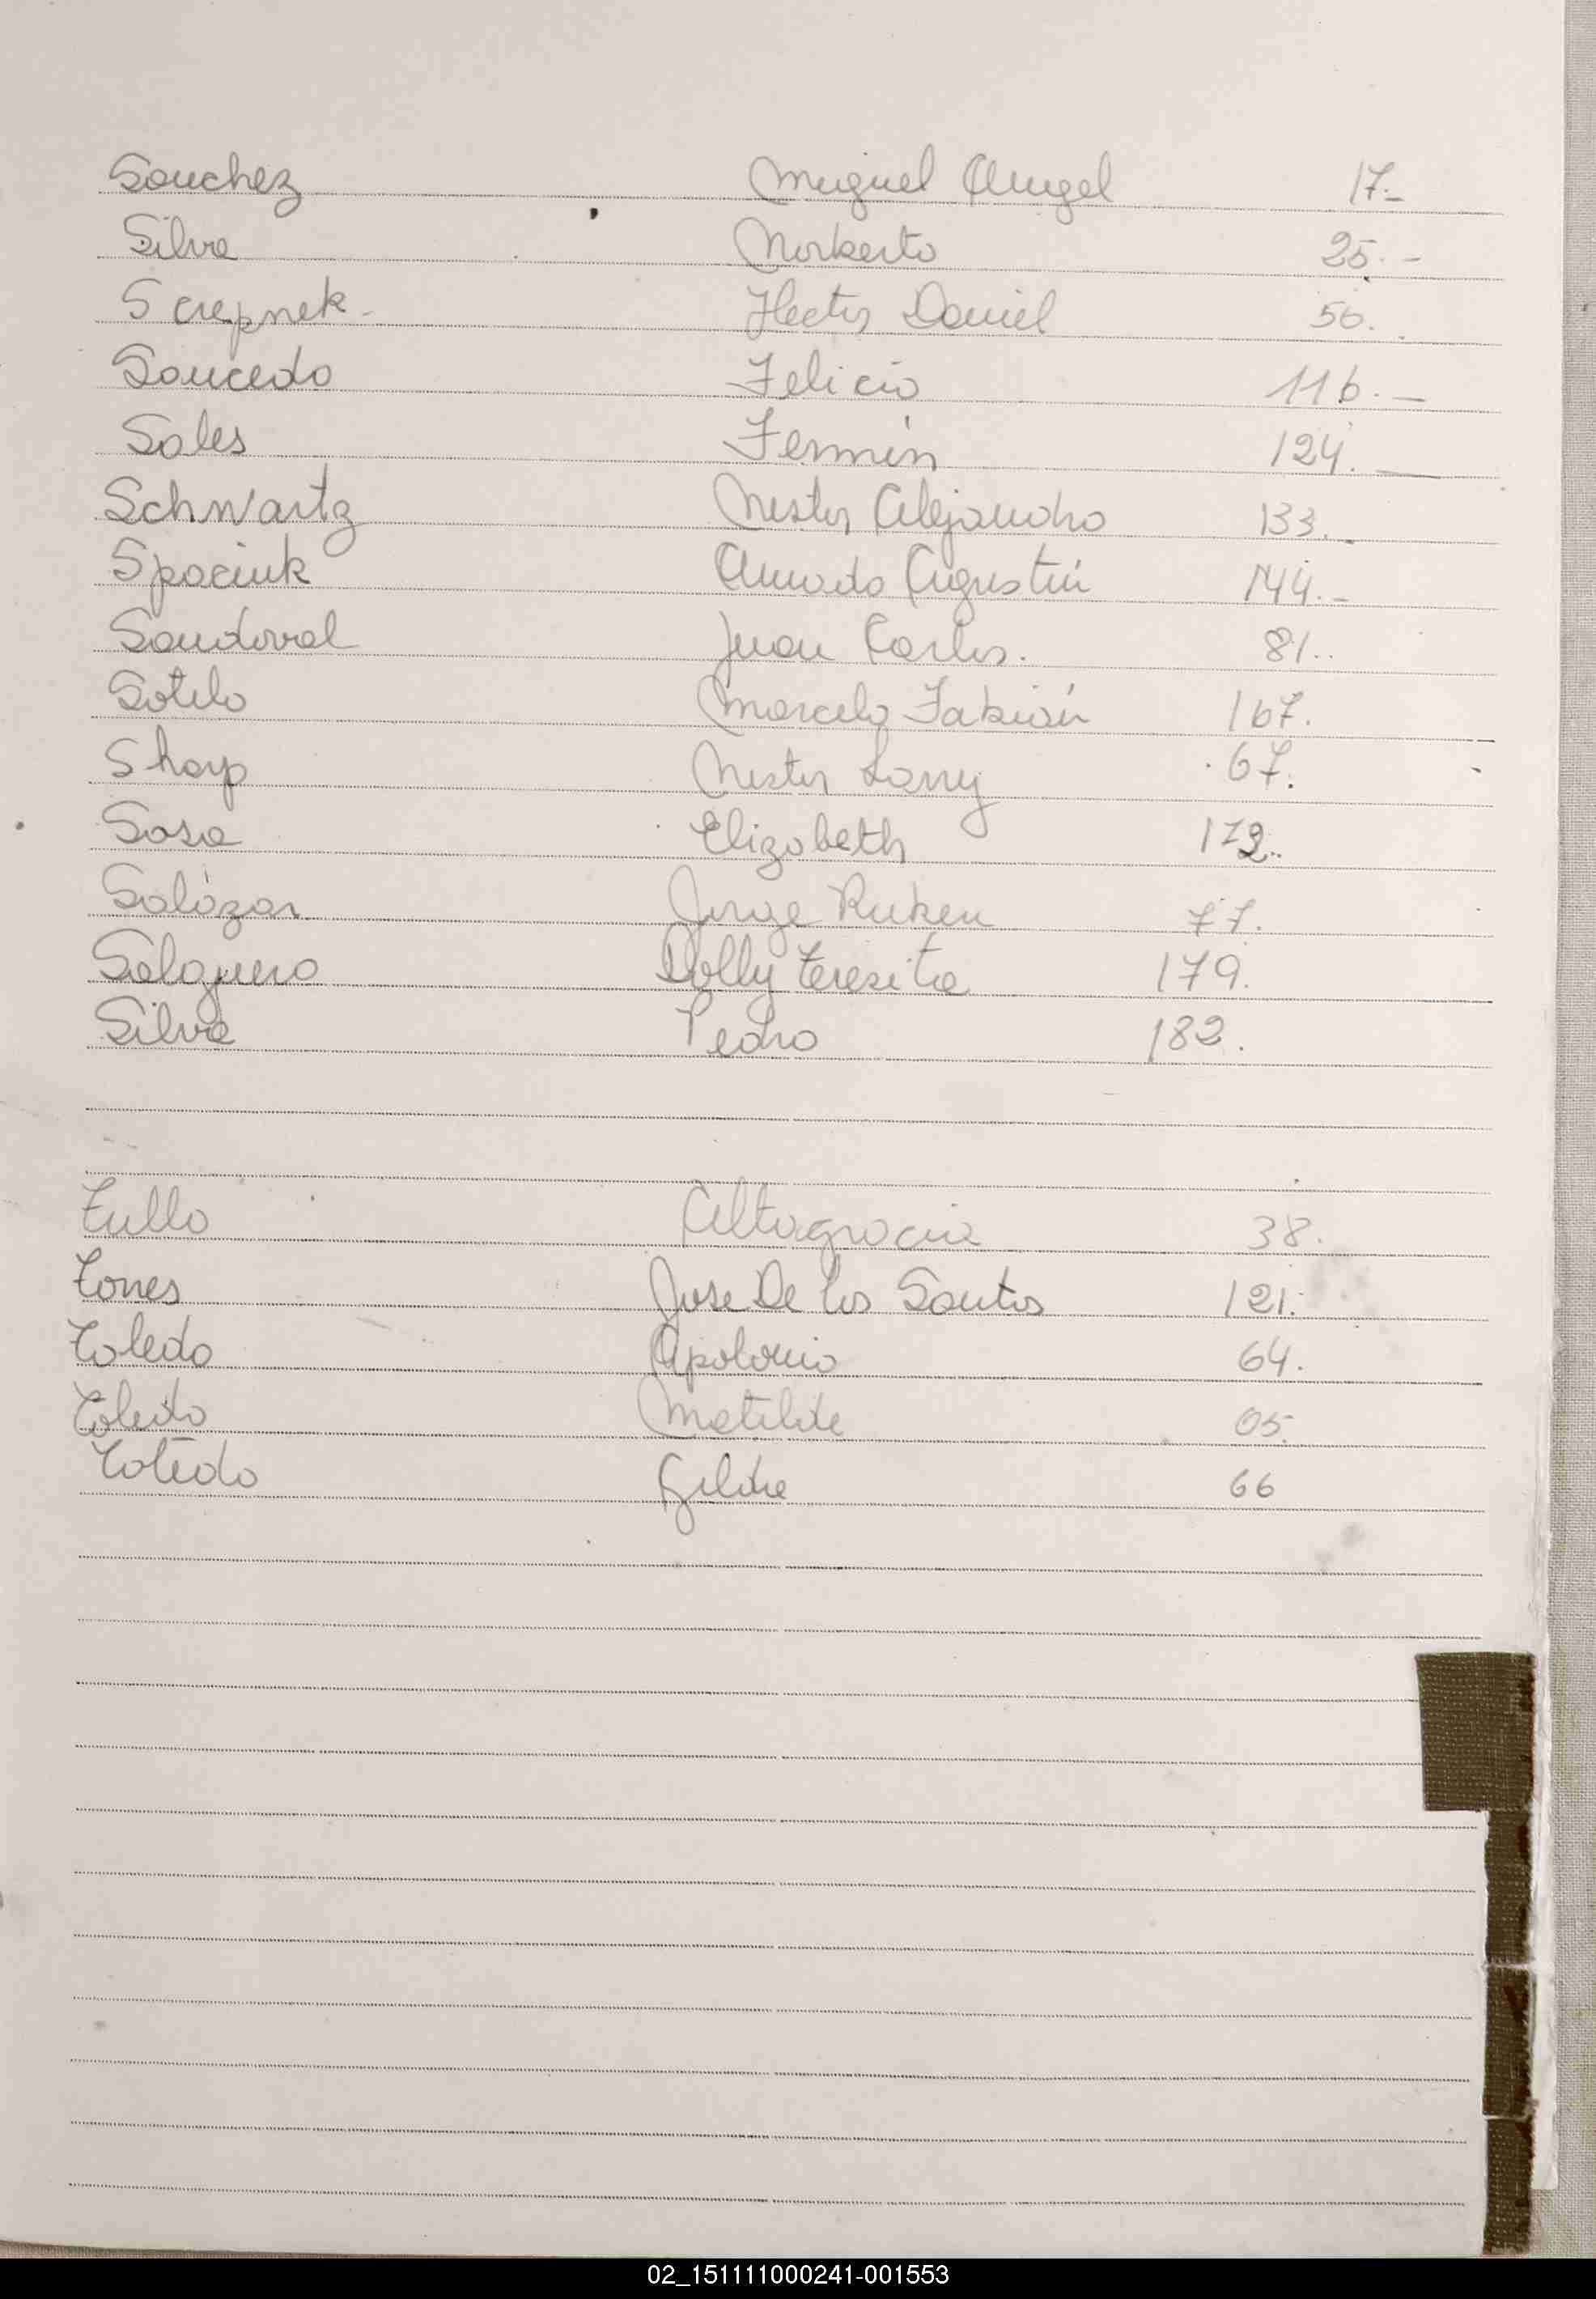 Sanchez Miguel Angel 17.-
Silva Norberto 25.-
Screpnek- Hector Daniel 50.
Saucedo Felicio 116.-
Sales Fermín 124.-
Schwartz Nestor Alejandro 133.-
Spaciuk Amado Agustín 144.-
Sandoval Juan Carlos. 81..
Sotelo Marcelo Fabián 167.
Sharp Nestor Larry 67.
Sosa Elizabeth 172.
Salázar Jorge Ruben 77.
Salguero Dolly Teresita 179.
Silva Pedro 182.
Tullo Altagracia 38.
Torres Jose De Los Santos 121.
Toledo Apolonio 64.
Toledo Matilde 05.
Toledo Gilda 66
02_151111000241-001553